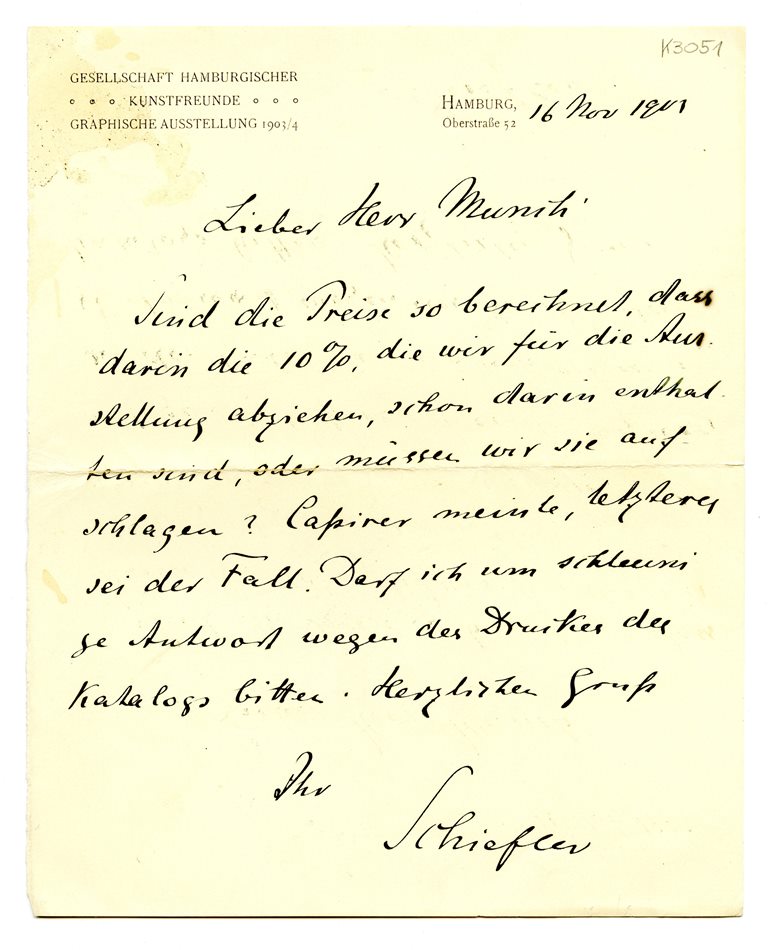 K3051
GESELLSCHAFT HAMBURGISCHER
∘ ∘ ∘ KUNSTFREUNDE ∘ ∘ ∘
GRAPHISCHE AUSSTELLUNG 1903/4
HAMBURG, 16 Nov 1903
Oberstraße 52
Lieber Herr Munch
Sind die Preise so berechnet, dass
darin die 10%, die wir für die Aus
stellung abziehen, schon darin enthal
ten sind, oder müssen wir sie auf
schlagen? Caßirer meinte, letzteres
sei der Fall. Darf ich um schleuni
ge Antwort wegen des Druckes des
Katalogs bitten. Herzlichen Gruß
Ihr
Schiefler